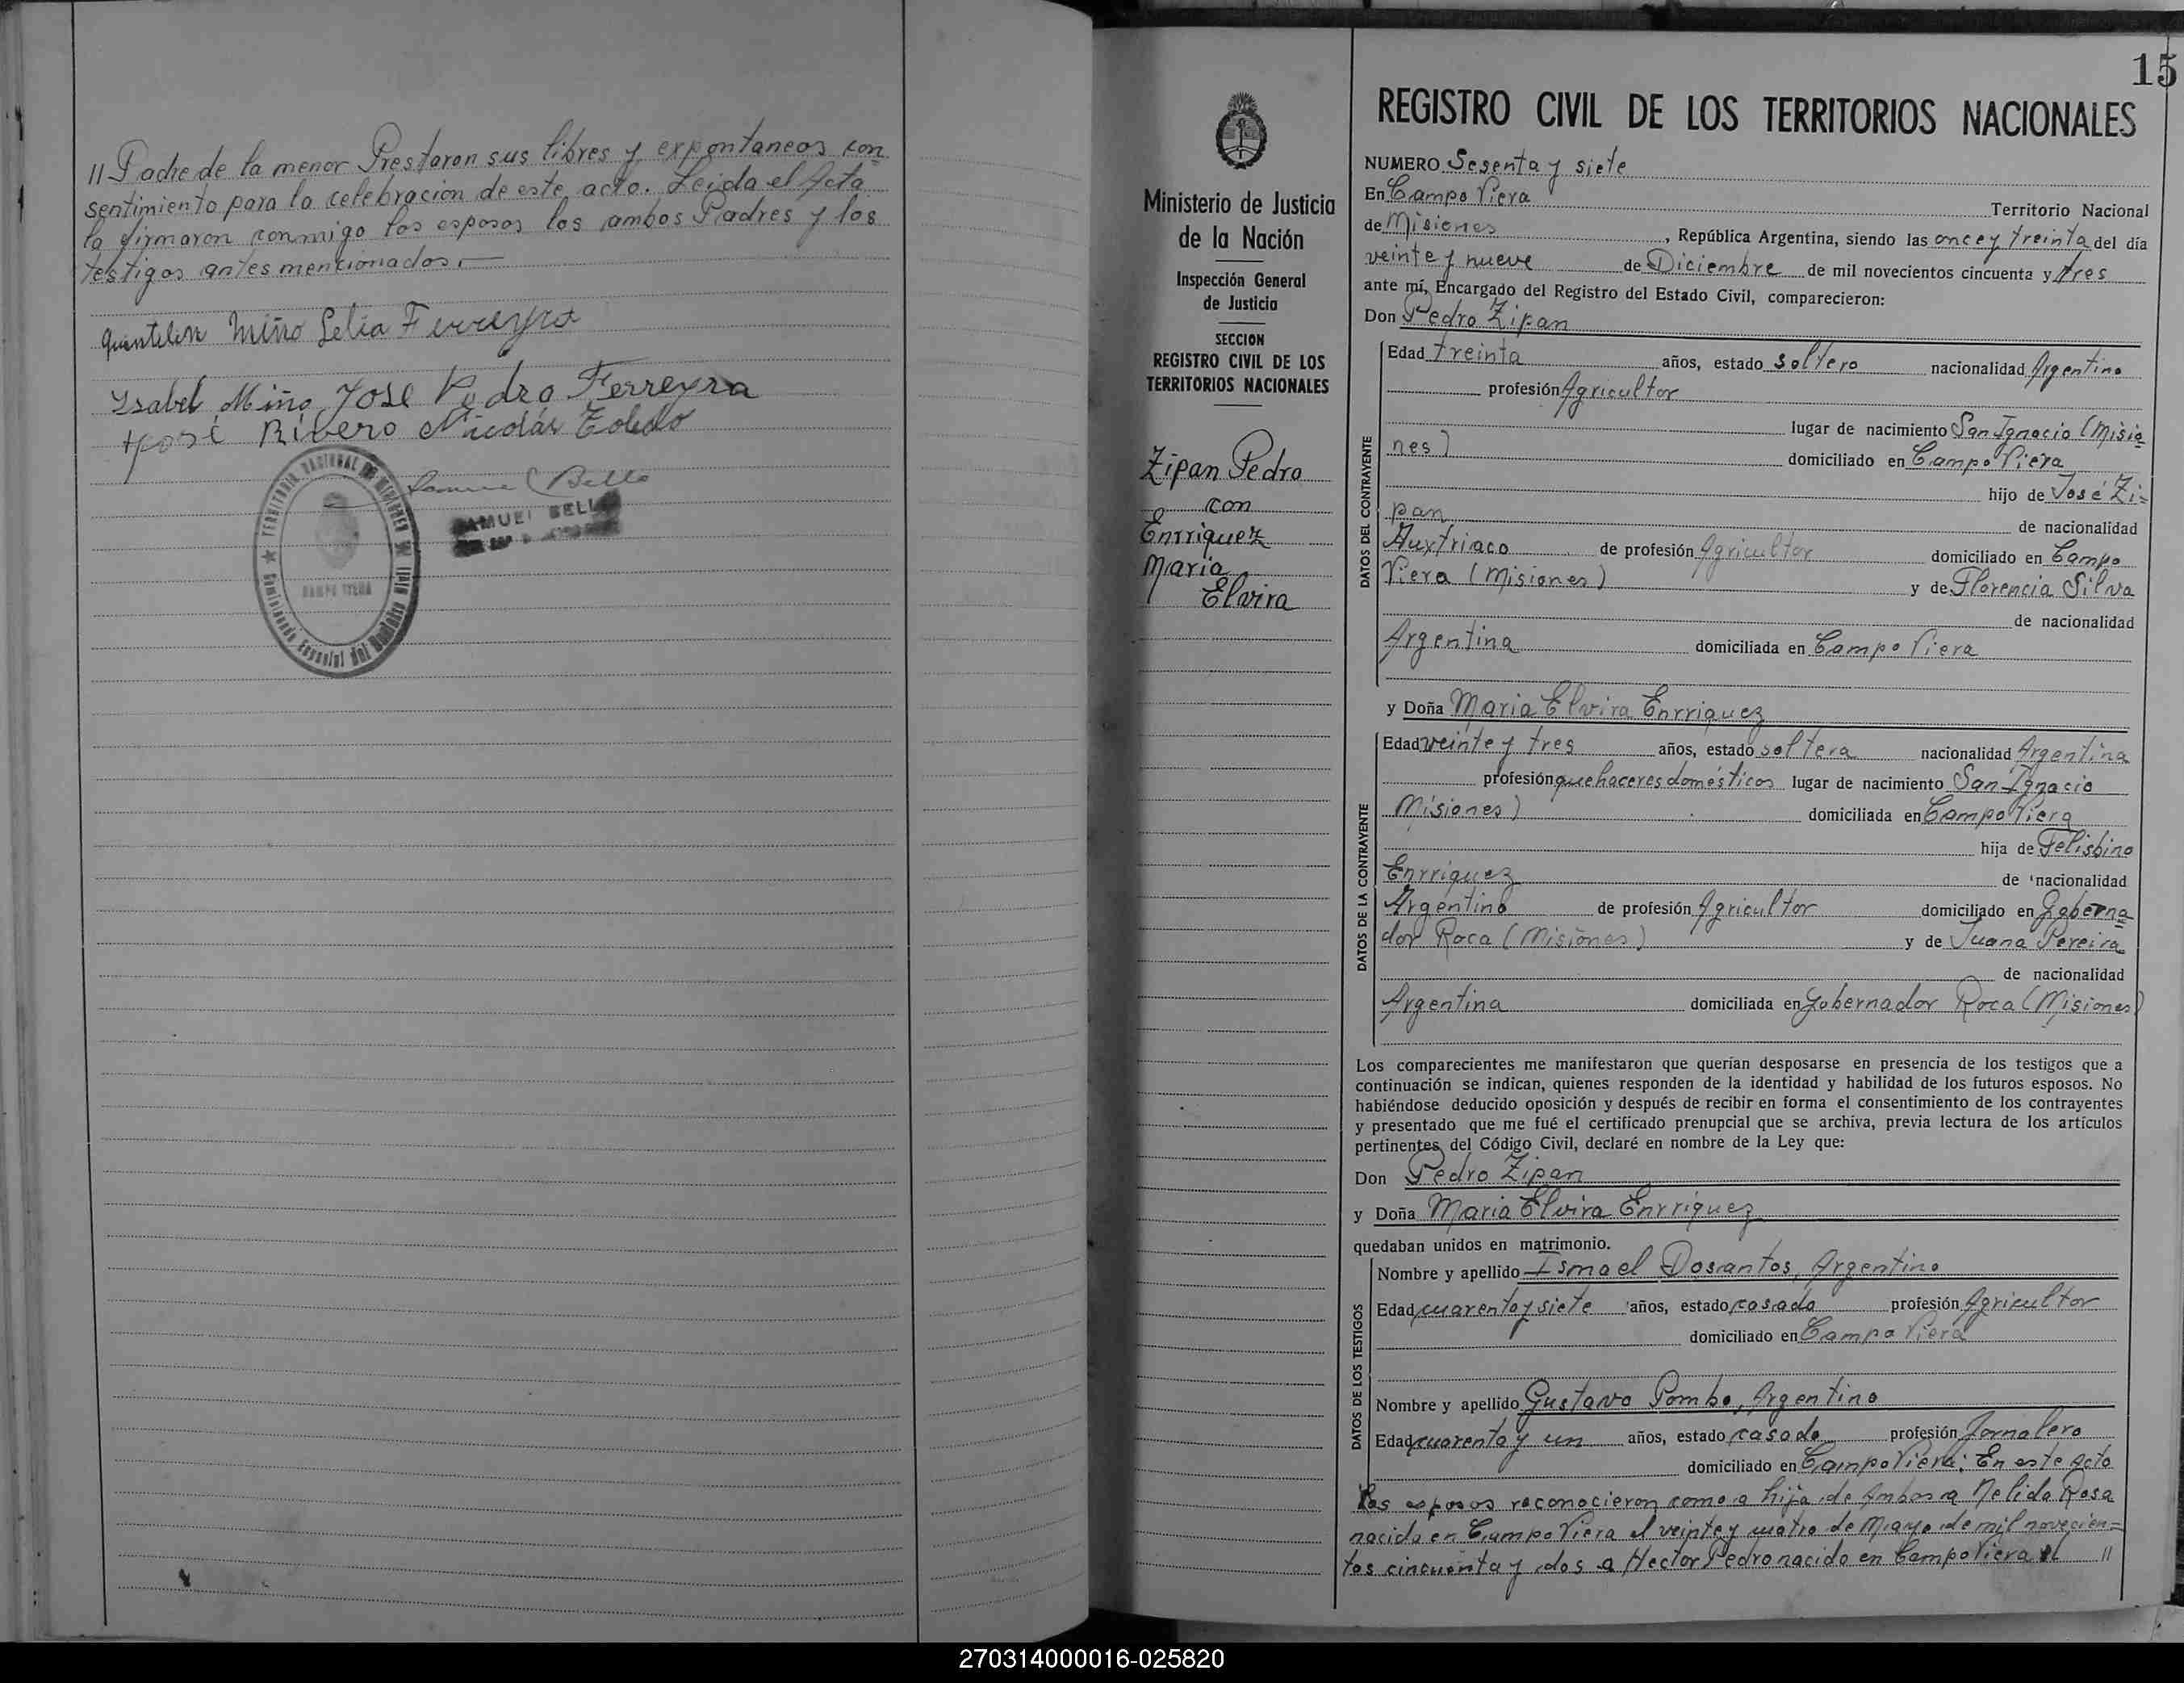 // Padre de la menor Prestaron sus libres y expontaneos con
sentimiento para la celebración de este acto. Leida el Acta
la firmaron conmigo los esposos los ambos Padres y los
testigos antes mencionados.—
Miño Lelia Ferreyra
Isabel Miño José Pedro Ferreyra
José Rivero Nicolás Toledo
Samuel Bello
SAMUEL BELLO
TERRITORIO NACIONAL DE MISIONES
CAMPO VIERA
15
REGISTRO CIVIL DE LOS TERRITORIOS NACIONALES
Ministerio de Justicia
de la Nación
Inspección General
de Justicia
SECCION
REGISTRO CIVIL DE LOS
TERRITORIOS NACIONALES
Zipan Pedro
con
Enrriquez
Maria
Elvira
NUMERO Sesenta y siete
En Campo Viera Territorio Nacional
de Misiones, República Argentina, siendo las once y treinta del día
veinte y nueve de Diciembre de mil novecientos cincuenta y tres
ante mí, Encargado del Registro del Estado Civil, comparecieron:
Don Pedro Zipan
DATOS DEL CONTRAYENTE
Edad treinta años, estado soltero nacionalidad Argentino
profesión Agricultor
lugar de nacimiento San Ignacio (Misio
nes) domiciliado en Campo Viera
hijo de José Zi=
pan de nacionalidad
Auxtriaco de profesión Agricultor domiciliado en Campo
Viera (Misiones) y de Florencia Silva
de nacionalidad
Argentina domiciliada en Campo Viera
y Doña Maria Elvira Enrriquez
DATOS DE LA CONTRAYENTE
Edad veinte y tres años, estado soltera nacionalidad Argentina
profesión quehaceres domésticos lugar de nacimiento San Ignacio
Misiones) domiciliada en Campo Viera
hija de Felisbino
Enrriquez de nacionalidad
Argentino de profesión Agricultor domiciliado en Goberna=
dor Roca (Misiones) y de Juana Pereira
de nacionalidad
Argentina domiciliada en Gobernador Roca (Misiones)
Los comparecientes me manifestaron que querían desposarse en presencia de los testigos que a
continuación se indican, quienes responden de la identidad y habilidad de los futuros esposos. No
habiéndose deducido oposición y después de recibir en forma el consentimiento de los contrayentes
y presentado que me fué el certificado prenupcial que se archiva, previa lectura de los artículos
pertinentes del Código Civil, declaré en nombre de la Ley que:
Don Pedro Zipan
y Doña Maria Elvira Enrriquez
quedaban unidos en matrimonio.
DATOS DE LOS TESTIGOS
Nombre y apellido Ismael Dosantos, Argentino
Edad cuarenta y siete años, estado casado profesión Agricultor
domiciliado en Campo Viera
Nombre y apellido Gustavo Pombo, Argentino
Edad cuarenta y un años, estado casado profesión Jornalero
domiciliado en Campo Viera; En este acto
los esposos reconocieron como a hija de Ambos a Nelida Rosa
nacida en Campo Viera el veinte y cuatro de Mayo de mil novecien=
tos cincuenta y dos a Hector Pedro nacido en Campo Viera el //
270314000016-025820